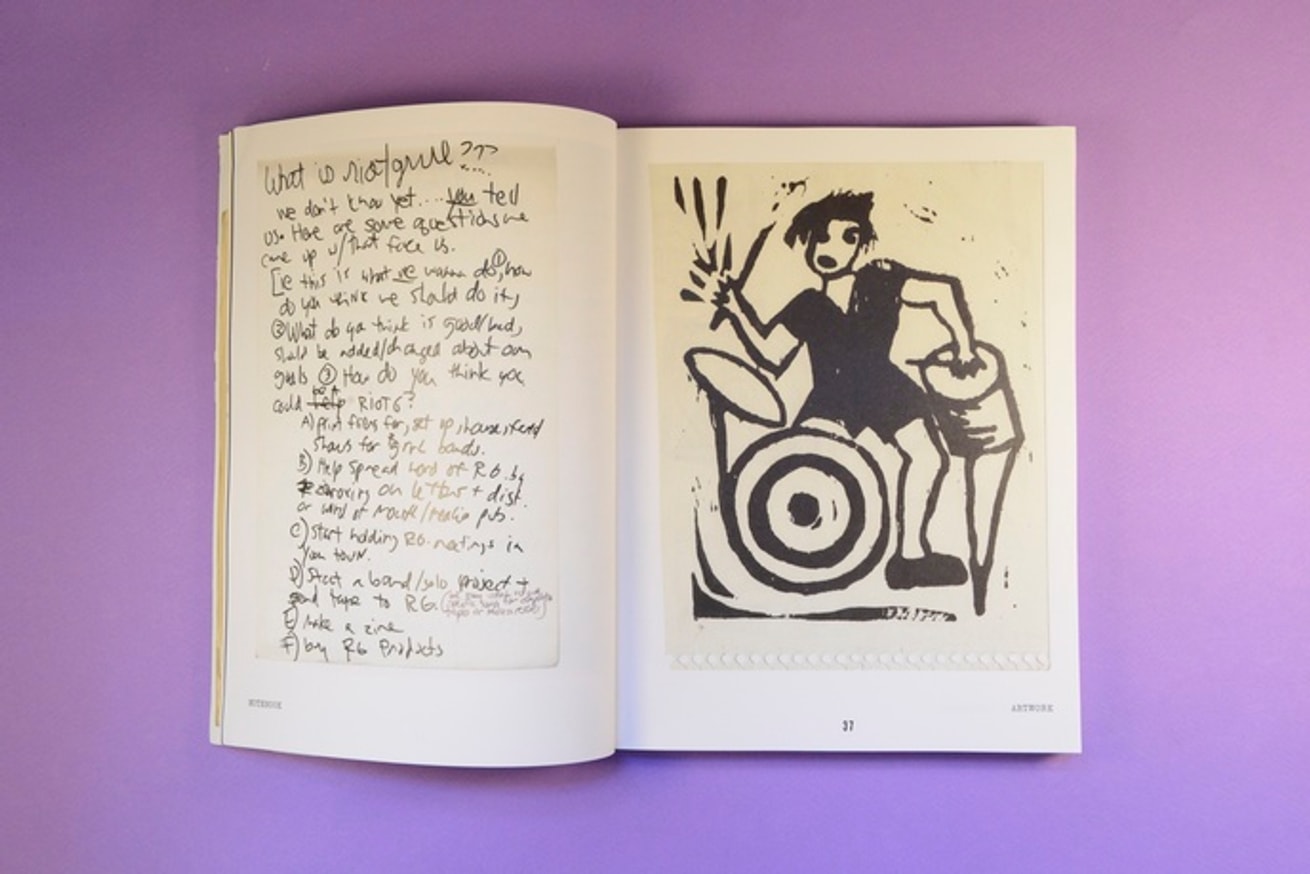 What is riot/grrrl???....
we don't know yet.... you tell
us. Here are some questions we
came up w/ that face us.
[ie this is what we wanna do, ① how
do you think we should do it,
② What do you think is good/bad,
should be added/changed about our
goals ③ How do you think you
could help be a RIOT G?
A) print fliers for, set up, house, attend
shows for grrrl bands.
B) Help spread word of R.G. by
xeroxing our letter + dist.
or word of mouth/ pub.
C) Start holding R.G. meetings in
your town.
D) Start a band/solo project +
send tape to R.G.
E) make a zine
F) buy RG products
NOTEBOOK
ARTWORK
37